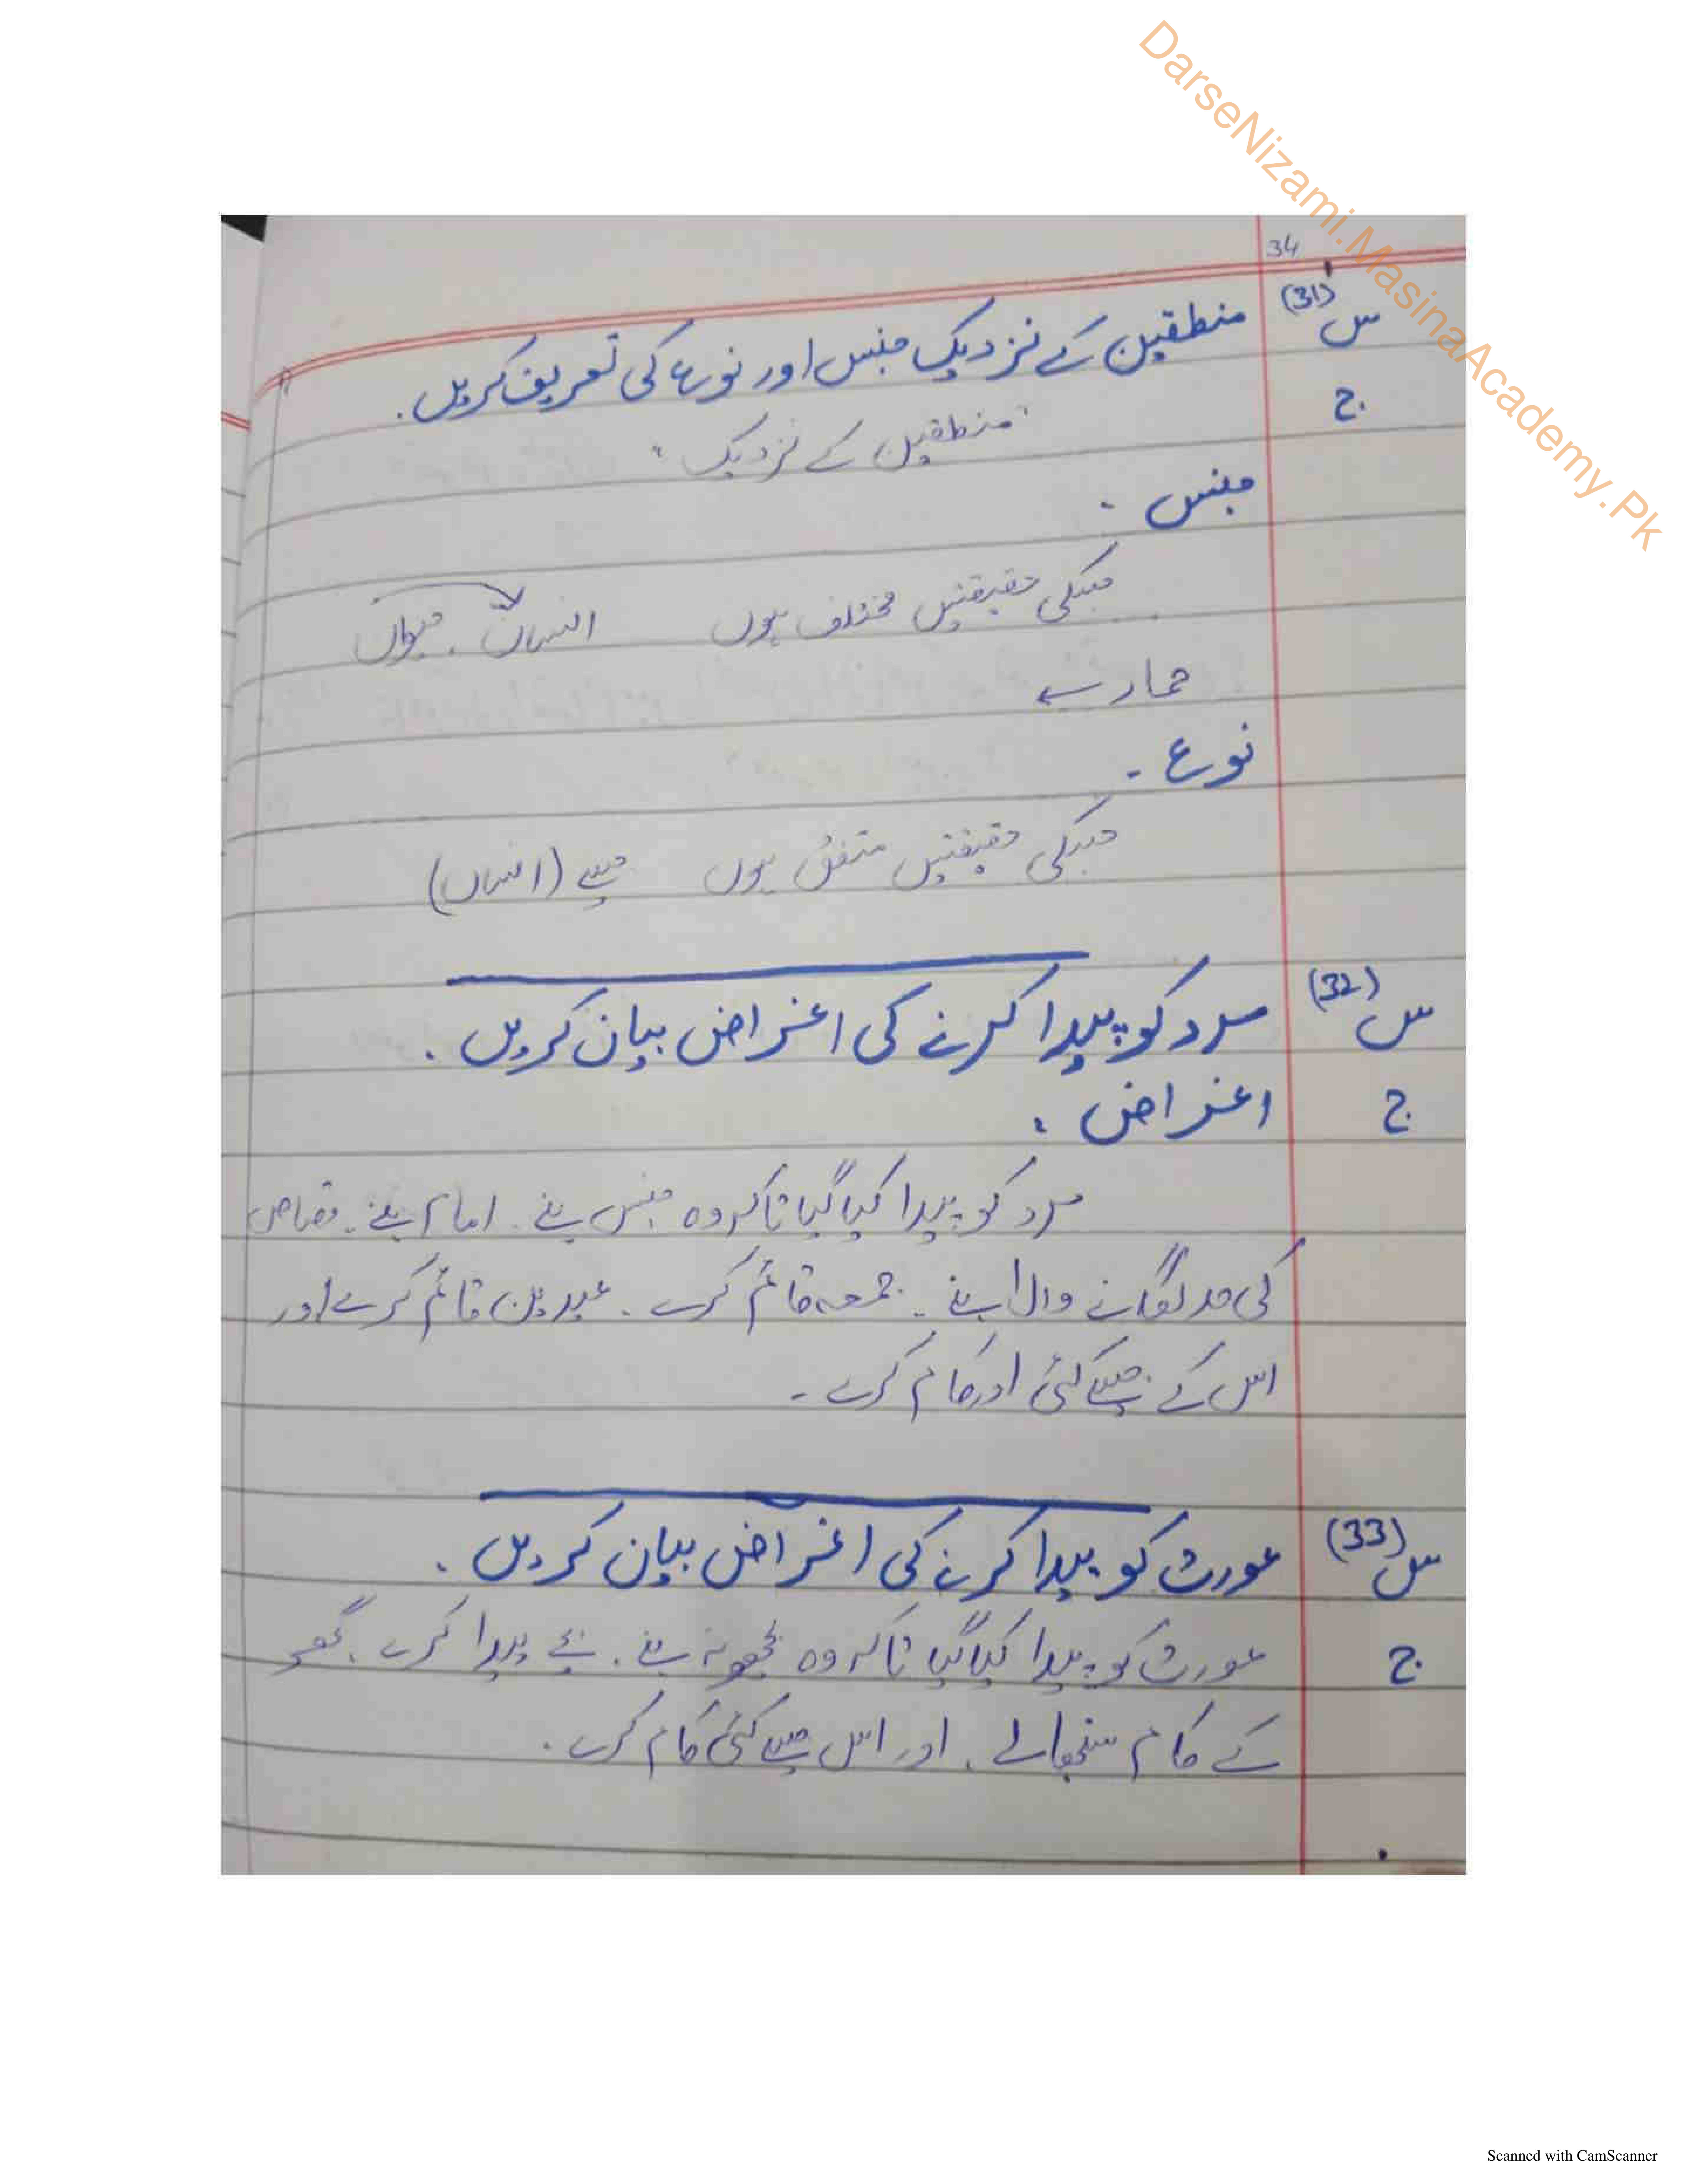 DarseNizami.MasinaAcademy.Pk
34
س (31) منطقین کے نزدیک جنس اور نوع کی تعریف کریں.
ج
منطقین کے نزدیک :
جنس .
جسکی حقیقتیں مختلف ہوں انسان . حیوان
نوع -
جسکی حقیقتیں متفق ہوں جیسے (انسان)
س (32) مرد کو پیدا کرنے کی اغراض بیان کریں .
ج اغراض :
مرد کو پیدا کیا گیا تاکہ وہ بنے . امام بنے . قصاص
کی حد لگانے والا بنے . جمعہ قائم کرے . عیدین قائم کرے اور
اس کے جیسے کئی اور کام کرے -
س (33) عورت کو پیدا کرنے کی اغراض بیان کریں .
ج عورت کو پیدا کیا گیا تاکہ وہ بچھونہ بنے . بچے پیدا کرے . گھر
کے کام سنبھالے . اور اس جیسے کئی کام کرے .
Scanned with CamScanner